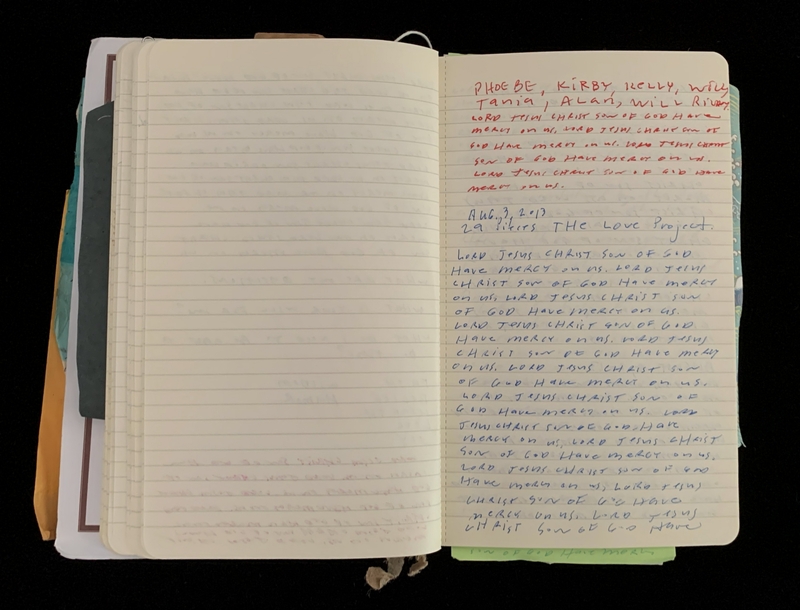 PHOEBE, KIRBY, KELLY, WILL,
Tania, ALAN, WILL
LORD JESUS CHRIST SON OF GOD HAVE
MERCY ON US. LORD JESUS CHRIST SON OF
GOD HAVE MERCY ON US. LORD JESUS CHRIST
SON OF GOD HAVE MERCY ON US.
LORD JESUS CHRIST SON OF GOD HAVE
MERCY ON US.
AUG. 3, 2013
29 THE LOVE Project.
LORD JESUS CHRIST SON OF GOD
HAVE MERCY ON US. LORD JESUS
CHRIST SON OF GOD HAVE MERCY
ON US. LORD JESUS CHRIST SON
OF GOD HAVE MERCY ON US.
LORD JESUS CHRIST SON OF GOD
HAVE MERCY ON US. LORD JESUS
CHRIST SON OF GOD HAVE MERCY
ON US. LORD JESUS CHRIST SON
OF GOD HAVE MERCY ON US.
LORD JESUS CHRIST SON OF
GOD HAVE MERCY ON US. LORD
JESUS CHRIST SON OF GOD HAVE
MERCY ON US. LORD JESUS CHRIST
SON OF GOD HAVE MERCY ON US.
LORD JESUS CHRIST SON OF GOD
HAVE MERCY ON US. LORD JESUS
CHRIST SON OF GOD HAVE
MERCY ON US. LORD JESUS
CHRIST SON OF GOD HAVE